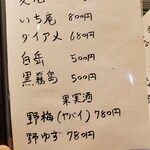 いち庵 800円
ダイアメ 680円
白岳 500円
黒霧島 500円
果実酒
野梅(ヤバイ) 780円
野ゆず 780円